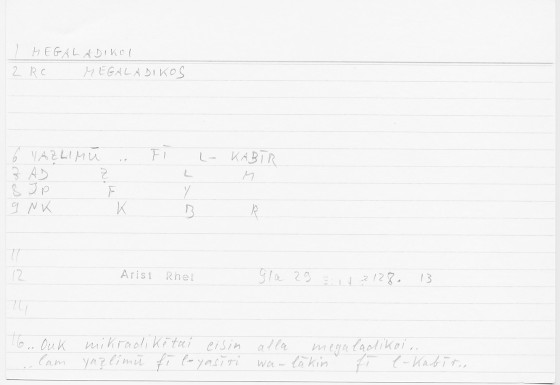 1 MEGALADIKOI
2 RC MEGALADIKOS
6 YAẒLIMŪ .. FĪ L- KABĪR
7 AD Ẓ L M
8 JP F Y
9 NK K B R
11
12 Arist Rhet 91a 29 128. 13
14
16 .. Ouk mikradikētai eisin alla megaladikoi..
.. lam yaẓlimū fī l-yasīri wa-lākin fī l-Kabīr..